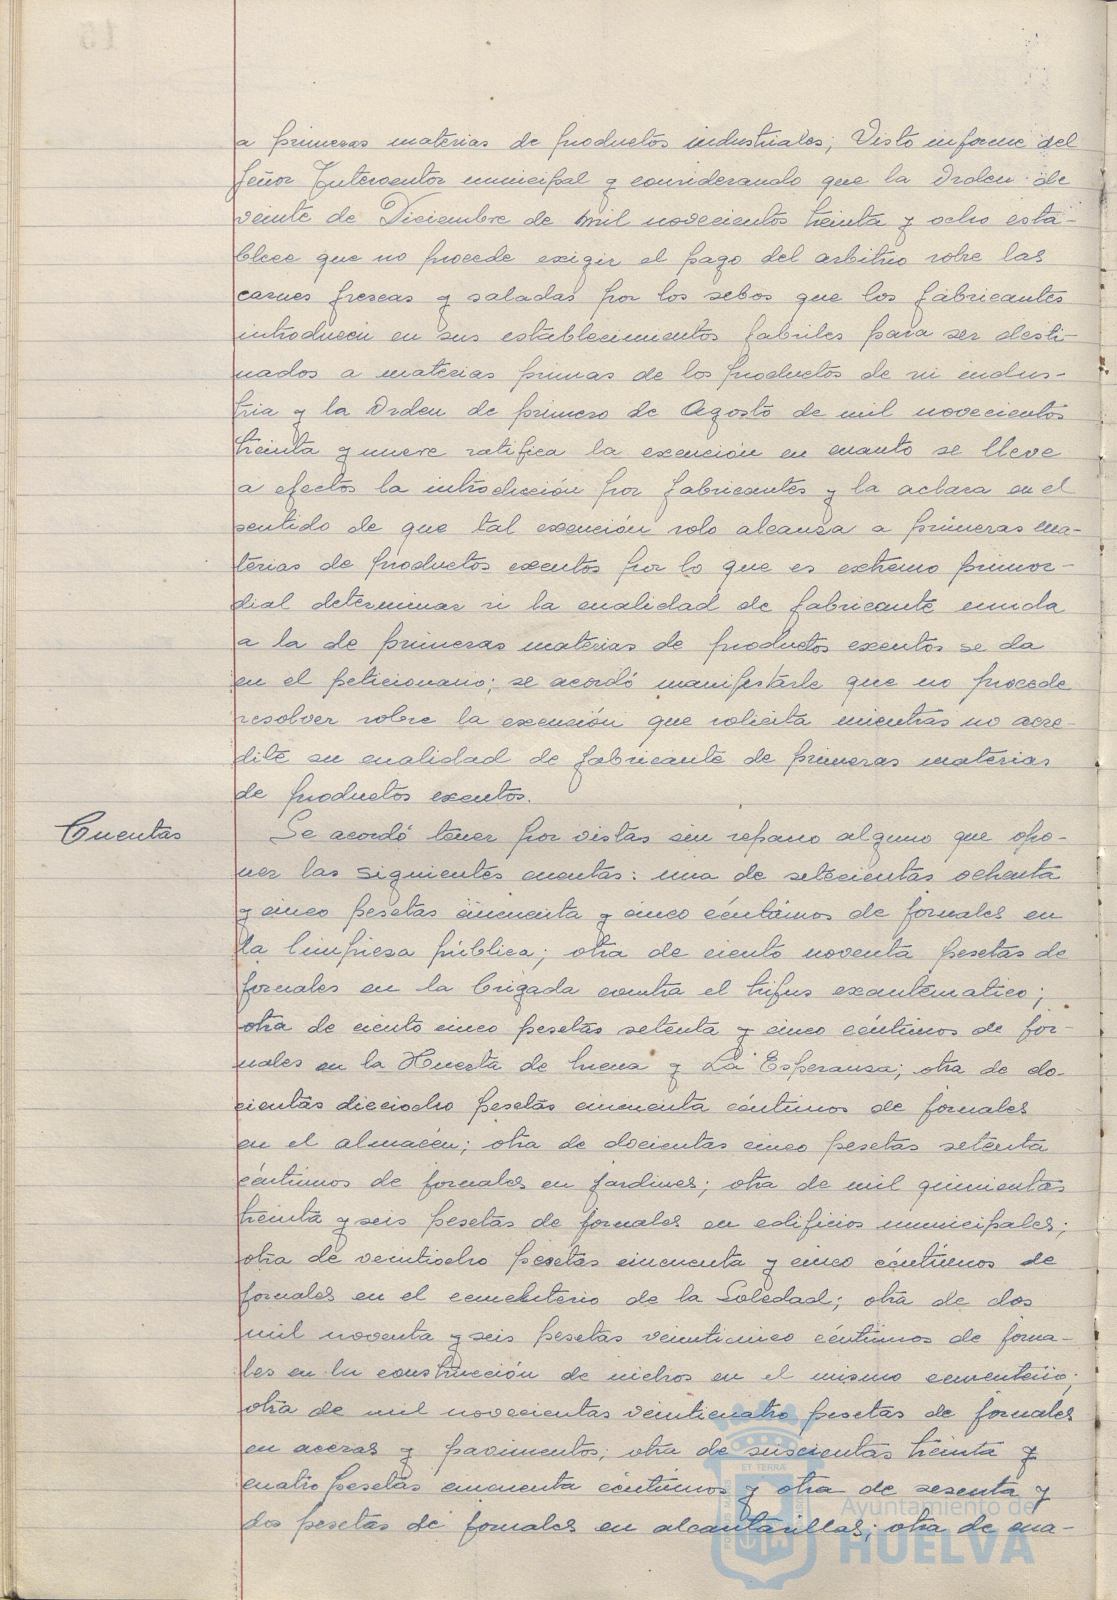 a primeras materias de productos industriales; Visto informe del
Señor Interventor municipal y considerando que la Orden de
veinte de Diciembre de mil novecientos treinta y ocho esta-
blece que no procede exigir el pago del arbitrio sobre las
carnes frescas y saladas por los sebos que los fabricantes
introducen en sus establecimientos fabriles para ser desti-
nados a materias primas de los productos de su indus-
tria y la Orden de primero de Agosto de mil novecientos
treinta y nueve ratifica la exención en cuanto se lleve
a efectos la introducción por fabricantes y la aclara en el
sentido de que tal exención solo alcanza a primeras ma-
terias de productos exentos por lo que es extremo primor-
dial determinar si la cualidad de fabricante unida
a la de primeras materias de productos exentos se da
en el peticionario; se acordó manifestarle que no procede
resolver sobre la exención que solicita mientras no acre-
dite su cualidad de fabricante de primeras materias
de productos exentos.
Cuentas
Se acordó tener por vistas sin reparo alguno que opo-
ner las siguientes cuentas: una de setecientas ochenta
y cinco pesetas cincuenta y cinco céntimos de jornales en
la limpieza pública; otra de ciento noventa pesetas de
jornales en la Brigada contra el tifus exantematico;
otra de ciento cinco pesetas setenta y cinco céntimos de jor-
nales en la Huerta de Mena y La Esperanza; otra de do-
cientas dieciocho pesetas cincuenta céntimos de jornales
en el almacén; otra de docientas cinco pesetas setenta
céntimos de jornales en jardines; otra de mil quinientas
treinta y seis pesetas de jornales en edificios municipales;
otra de veintiocho pesetas cincuenta y cinco céntimos de
jornales en el cementerio de la Soledad; otra de dos
mil noventa y seis pesetas veinticinco céntimos de jorna-
les en la construcción de nichos en el mismo cementerio;
otra de mil novecientas veinticuatro pesetas de jornales
en aceras y pavimentos; otra de seiscientas treinta y
cuatro pesetas cincuenta céntimos y otra de sesenta y
dos pesetas de jornales en alcantarillas; otra de cua-
ET TERRÆ
Ayuntamiento de
HUELVA